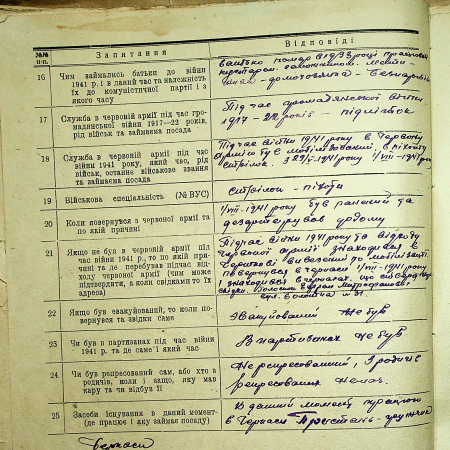 №№ п-п.
Запитання
Відповіді
16
Чим займались батьки до війни
1941 р. і в даний час та належність
їх до комуністичної партії і з
якого часу
батько помер в 1933 році працював
17
Служба в червоній армії під час гро-
мадянської війни 1917—22 років,
рід військ та займаєма посада
Під час громадянської війни
1917 – 22 років – підлітьок
18
Служба в червоній армії під час
війни 1941 року, який час, рід
військ, останнє військове звання
та займаєма посада
Під час війни 1941 року в Червону
Армію був мобілізований, в піхоту
стрілок. з
19
Військова спеціальність (№ ВУС)
Стрілок – піхоти
20
Коли повернувся з червоної армії та
по якій причині
1/VIII-1941 року був ранений та
дезертирував додому
21
Якщо не був в червоній армії під
час війни 1941 р., то по якій при-
чині та де перебував підчас від-
ходу червоної армії (чим може
підтвердити, а коли свідками то їх
адреса)
Підчас війни 1941 року та відходу
Червоної армії знаходився в
22
Якщо був евакуйований, то коли по-
вернувся та звідки саме
Эвакуйований не був
23
Чи був в партизанах під час війни
1941 р. та де саме і який час
В партизанах не був
24
Чи був репресований сам, або хто з
родичів, коли і защо, яку мав
кару та чи відбув її
Не репресований, з родичів
репресованих немає.
25
Засоби існування в даний момент
(де працює і яку займає посаду)
В даний момент працюю
в Черкаси Пристань –
Черкаси